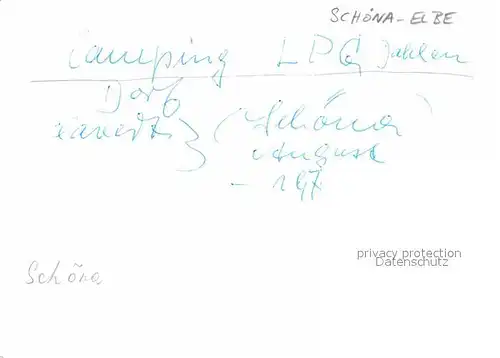 SCHÖNA-ELBE
Camping LPG Dahlen
Dorf
(Schöna)
August
- 197
privacy protection
Datenschutz
Schöna